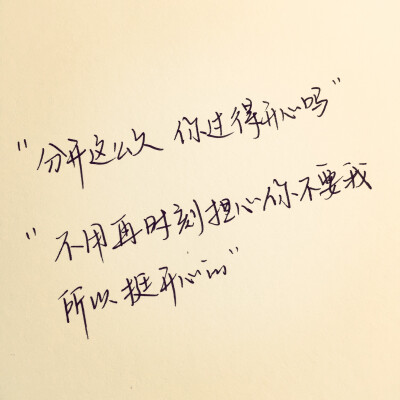 “分开这么久 你过得开心吗”
“不用再时刻担心你不要我
所以挺开心的”